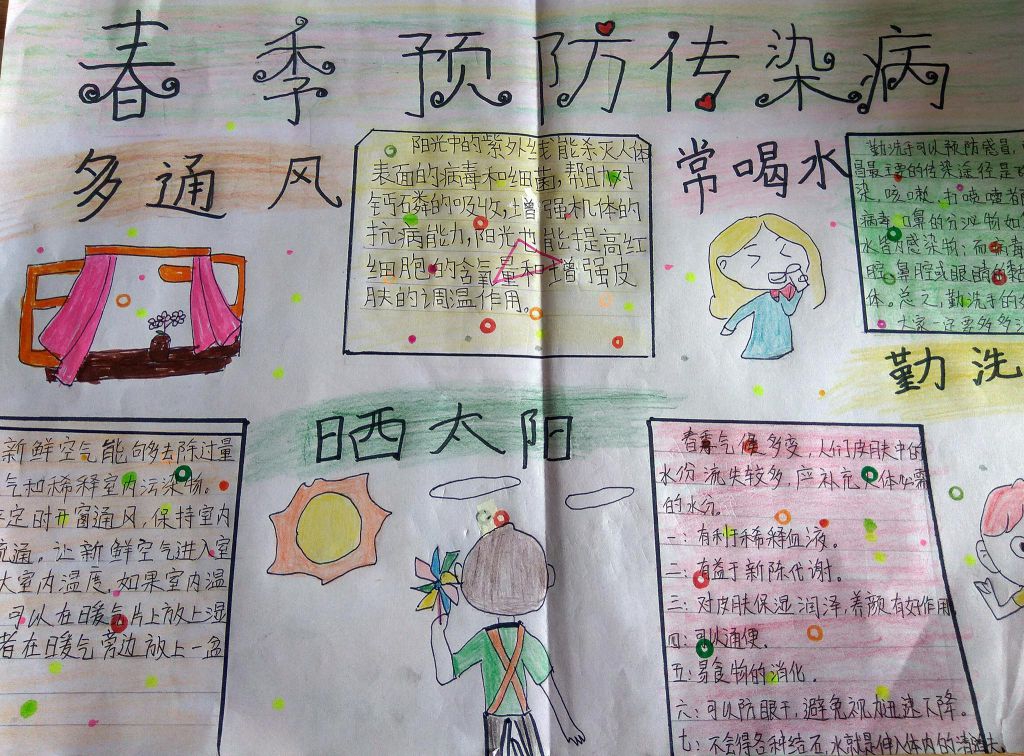 春季预防传染病
多通风
阳光中的紫外线能杀灭人体
表面的病毒和细菌,帮助对
钙石粦的吸收,增强机体的
抗病能力,阳光也能提高红
细胞的含氧量和增强皮
肤的调温作用。
常喝水
勤洗手可以预防感冒,
冒最主要的传染途径是
染,咳嗽,打喷嚏都
病毒,口鼻的分泌物如
水皆为感染物;而病毒
腔,鼻腔或眼睛的黏
体。总之,勤洗手的
大家一定要多多
勤洗
新鲜空气能句多去除过量
气和稀释室内污染物。
定时开窗通风,保持室内
流通。让新鲜空气进入室
大室内温度,如果室内温
可以在日暖气片上放上湿
者在日暖气旁边放上一盆
晒太阳
春季气候多变,人们皮肤中的
水份流失较多,应补充人体必需
的水分。
一:有利于稀释血液。
二:有益于新陈代谢。
三:对皮肤保湿润泽,养颜有好作用
四:可以通便。
五:易食物的消化。
六:可以防眼干,避免视力迅速下降。
七:不会得各种结石,水就是伸人体内的清